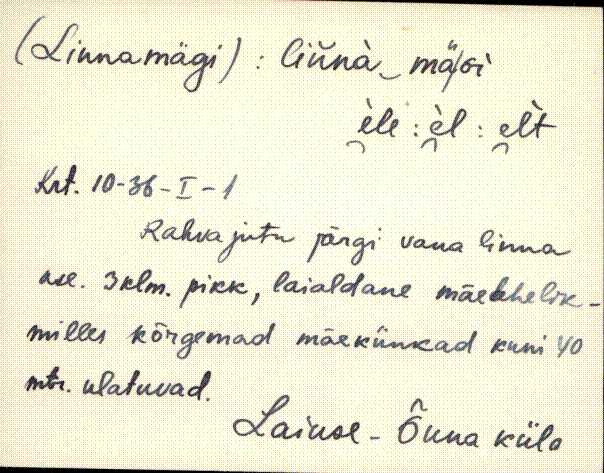 (Linnamägi) : lin̆nà‿mä̆gi
èle : èl : elt
Krt. 10-36-I-1
Rahva jutu järgi vana linna
ase. 3 klm. pikk, laialdane mäeahelik-
milles kõrgemad mäekünkad kuni 40
mtr. ulatuvad.
Laiuse - Õuna küla